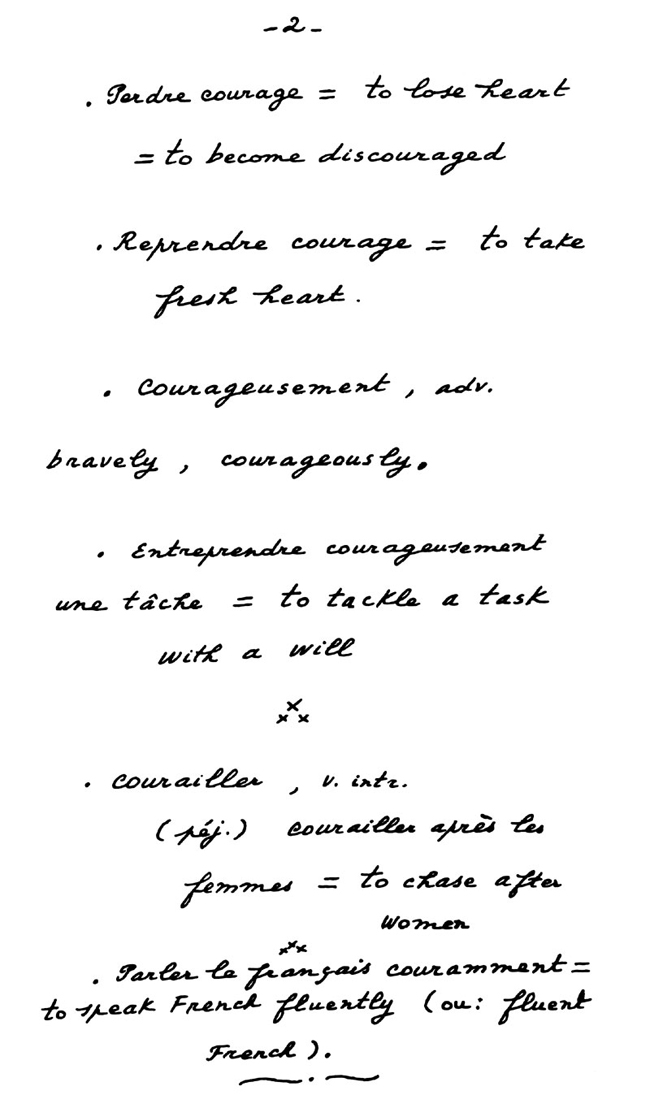 -2-
. Perdre courage = to lose heart
= to become discouraged
. Reprendre courage = to take
fresh heart.
. Courageusement, adv.
bravely, courageously.
. Entreprendre courageusement
une tâche = to tackle a task
with a will
x
x x
. Courailler, v. intr.
(péj.) courailler après les
femmes = to chase after
women
xxx
. Parler le français couramment =
to speak French fluently (ou: fluent
French).